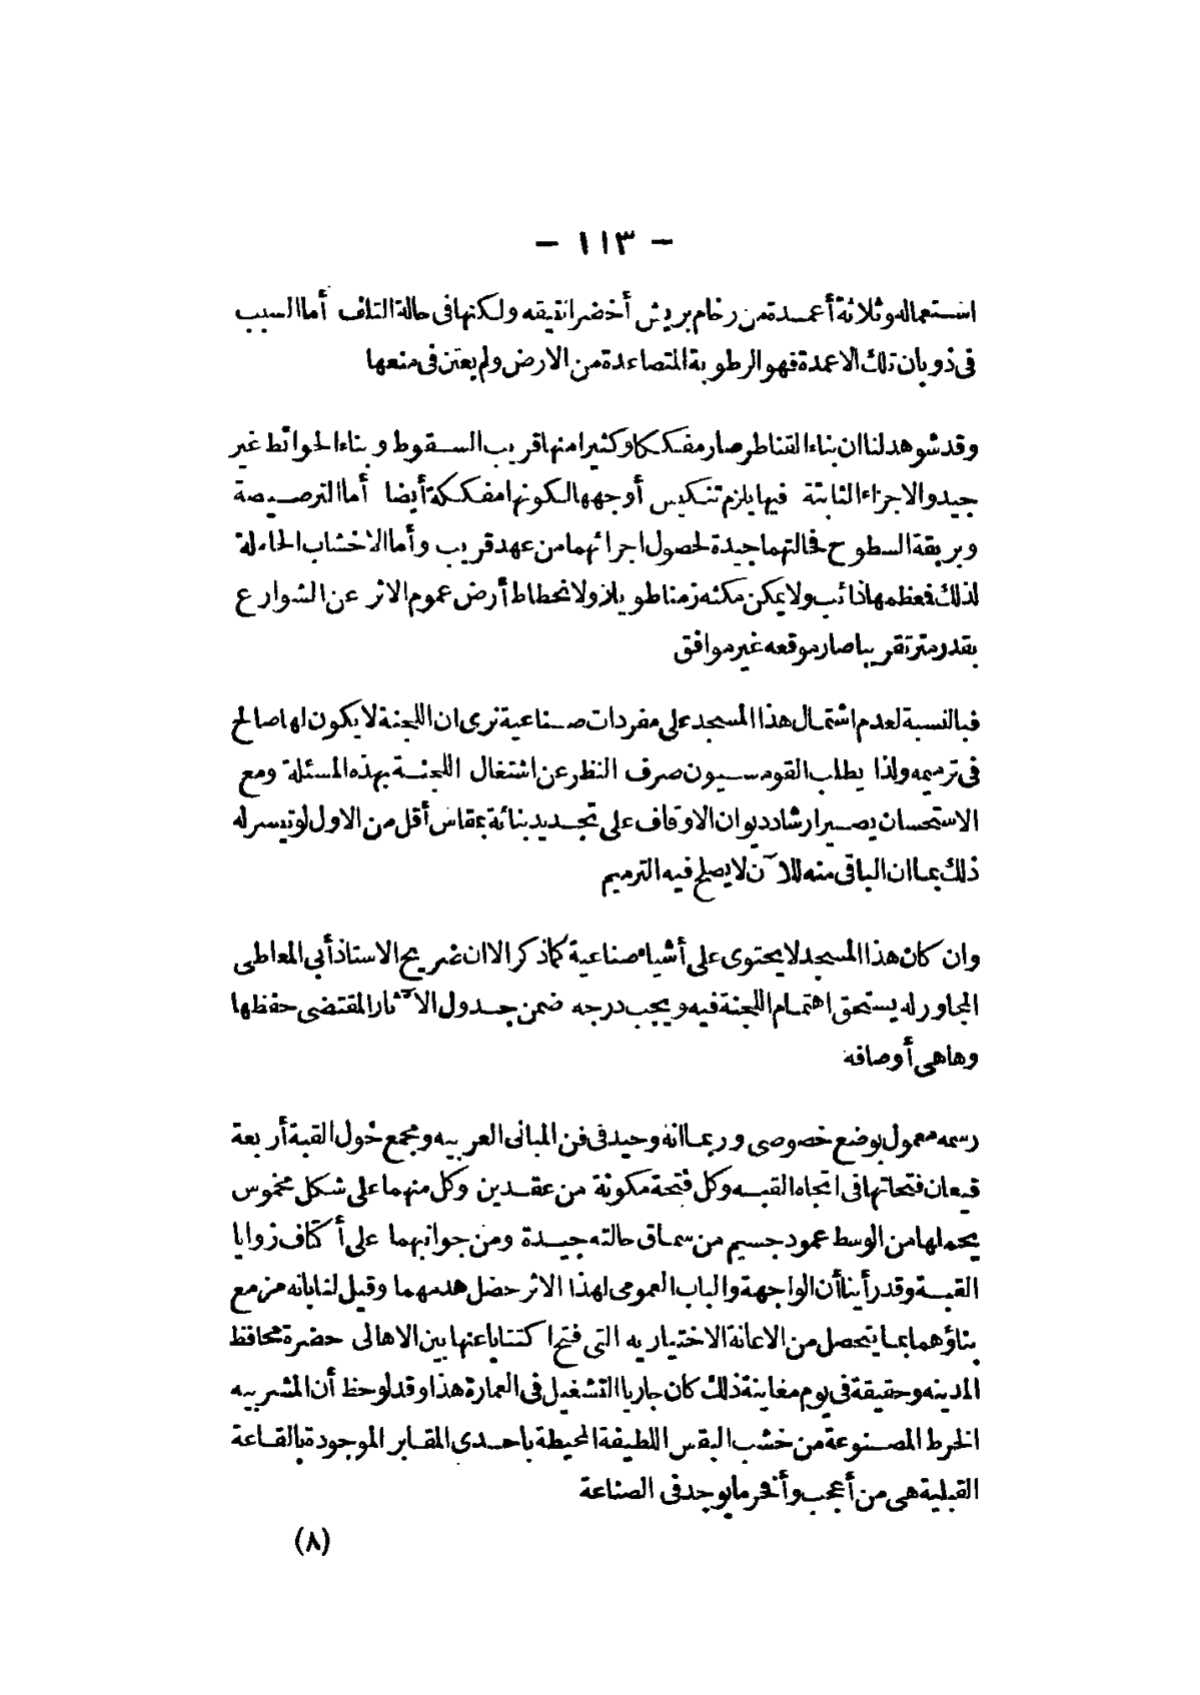 — ١١٣ —
استعماله وثلاثة أعمدة من رخام بريش أخضر انيقه ولكنها فى حالة التلف أما السبب
فى ذوبان تلك الاعمدة فهو الرطوبة المتصاعدة من الارض ولم يعتن فى منعها
وقد شوهد لنا ان بناء القناطر صار مفككا وكثيرا منها قريب السقوط وبناء الحوائط غير
جيد والاجزاء الثابتة فيها يلزم تنكيس أوجهها لكونها مفككة أيضا أما الترصيصة
وبريقة السطوح فحالتهما جيدة لحصول اجرائهما من عهد قريب وأما الاخشاب الحاملة
لذلك فمعظمها ذائب ولا يمكن مكثه زمنا طويلا ولانحطاط أرض عموم الاثر عن الشوارع
بقدر متر تقريبا صار موقعه غير موافق
فبالنسبة لعدم اشتمال هذا المسجد على مفردات صناعية نرى ان اللجنة لا يكون لها صالح
فى ترميمه ولذا يطلب القومسيون صرف النظر عن اشتغال اللجنة بهذه المسئلة ومع
الاستحسان يصير ارشاد ديوان الاوقاف على تجديد بنائه بمقاس أقل من الاول لو تيسر له
ذلك بما ان الباقى منه للآن لا يصلح فيه الترميم
وان كان هذا المسجد لا يحتوى على أشياء صناعية كما ذكر الا ان ضريح الاستاذ أبى المعاطى
المجاور له يستحق اهتمام اللجنة فيه ويجب درجه ضمن جدول الآثار المقتضى حفظها
وها هى أوصافه
رسمه معمول بوضع خصوصى وربما انه وحيد فى فن المبانى العربيه ومجمع حول القبة أربعة
قيعان فتحاتها فى اتجاه القبه وكل فتحة مكونة من عقدين وكل منهما على شكل مخموس
يحملها من الوسط عمود جسيم من سماق حالته جيدة ومن جوانبهما على أكتاف زوايا
القبة وقد رأينا أن الواجهة والباب العمومى لهذا الاثر حصل هدمهما وقيل لنا بانه مزمع
بناؤهما بما يتحصل من الاعانة الاختياريه التى فتح اكتتابا عنها بين الاهالى حضرة محافظ
المدينه وحقيقة فى يوم معاينة ذلك كان جاريا التشغيل فى العمارة هذا وقد لوحظ أن المشربيه
الخرط المصنوعة من خشب البقس اللطيفة المحيطة باحدى المقابر الموجودة بالقاعة
القبلية هى من أعجب وأفخر ما يوجد فى الصناعة
(٨)